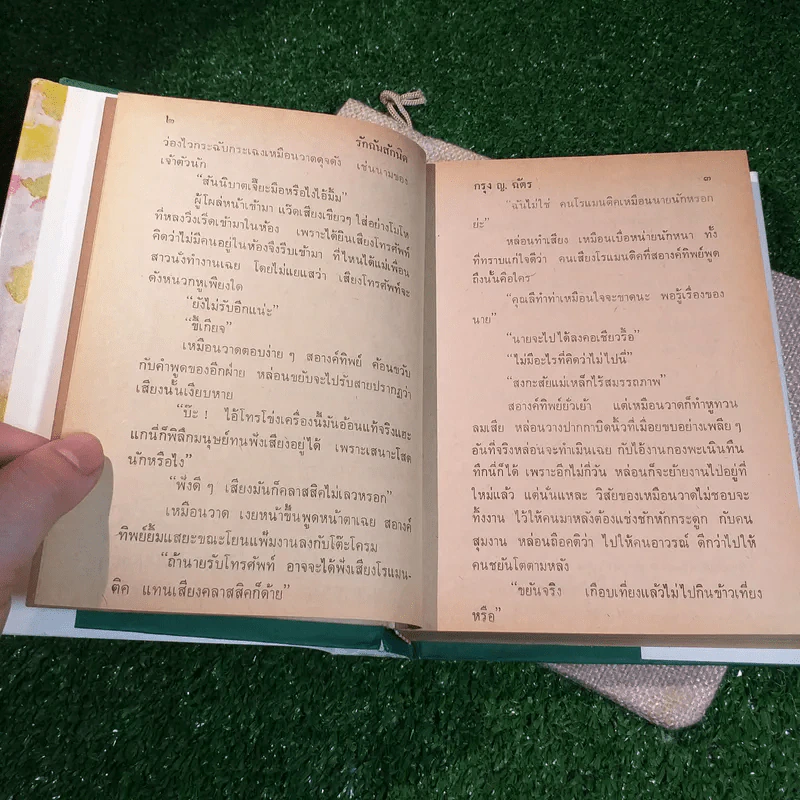 ๒ รักฉันสักนิด
ว่องไวกระฉับกระเฉงเหมือนวาดดุจดัง เช่นนามของ
เจ้าตัวนัก
“สันนิบาตเจี๊ยะมือหรือไงไอ้มิ้ม”
ผู้โผล่หน้าเข้ามา แว๊ดเสียงเขียวๆ ใส่อย่างโมโห
ที่หลงวิ่งเร็ดเข้ามาในห้อง เพราะได้ยินเสียงโทรศัพท์
คิดว่าไม่มีคนอยู่ในห้องจึงรีบเข้ามา ที่ไหนได้แม่เพื่อน
สาวนั่งทำงานเฉย โดยไม่แยแสว่า เสียงโทรศัพท์จะ
ดังหนวกหูเพียงใด
“ยังไม่รับอีกแน่ะ”
“ขี้เกียจ”
เหมือนวาดตอบง่ายๆ สอางค์ทิพย์ ค้อนขวับ
กับคำพูดของอีกฝ่าย หล่อนขยับจะไปรับสายปรากฏว่า
เสียงนั้นเงียบหาย
“บ๊ะ ! ไอ้โทรโข่งเครื่องนี้มันอ้อนแท้จริงแฮะ
แกนี่ก็พิลึกมนุษย์ทนฟังเสียงอยู่ได้ เพราะเสนาะโสต
นักหรือไง”
“ฟังดีๆ เสียงมันก็คลาสสิคไม่เลวหรอก”
เหมือนวาด เงยหน้าขึ้นพูดหน้าตาเฉย สอางค์
ทิพย์ยิ้มแสยะขณะโยนแฟ้มงานลงกับโต๊ะโครม
“ถ้านายรับโทรศัพท์ อาจจะได้ฟังเสียงโรแมน-
ติค แทนเสียงคลาสสิคก็ด้าย”
กรุง ญ. ฉัตร ๓
“ฉันไม่ใช่ คนโรแมนติคเหมือนนายนักหรอก
ย่ะ”
หล่อนทำเสียง เหมือนเบื่อหน่ายนักหนา ทั้ง
ที่ทราบแก่ใจดีว่า คนเสียงโรแมนติคที่สอางค์ทิพย์พูด
ถึงนั้นคือใคร
“คุณลีทำท่าเหมือนใจจะขาดนะ พอรู้เรื่องของ
นาย”
“นายจะไปได้ลงคอเชียวรึ้อ”
“ไม่มีอะไรที่คิดว่าไม่ไปนี่”
“สงกะสัยแม่เหล็กไร้สมรรถภาพ”
สอางค์ทิพย์ยั่วเย้า แต่เหมือนวาดก็ทำหูทวน
ลมเสีย หล่อนวางปากกาบิดนิ้วที่เมื่อยขบอย่างเพลียๆ
อันที่จริงหล่อนจะทำเมินเฉย กับไอ้งานกองพะเนินทึน
ทึกนี่ก็ได้ เพราะอีกไม่กี่วัน หล่อนก็จะย้ายงานไปอยู่ที่
ใหม่แล้ว แต่นั่นแหละ วิสัยของเหมือนวาดไม่ชอบจะ
ทิ้งงาน ไว้ให้คนมาหลังต้องแช่งชักหักกระดูก กับคน
สุมงาน หล่อนถือคติว่า ไปให้คนอาวรณ์ ดีกว่าไปให้
คนชยันโตตามหลัง
“ขยันจริ๊ง เกือบเที่ยงแล้วไม่ไปกินข้าวเที่ยง
หรือ”